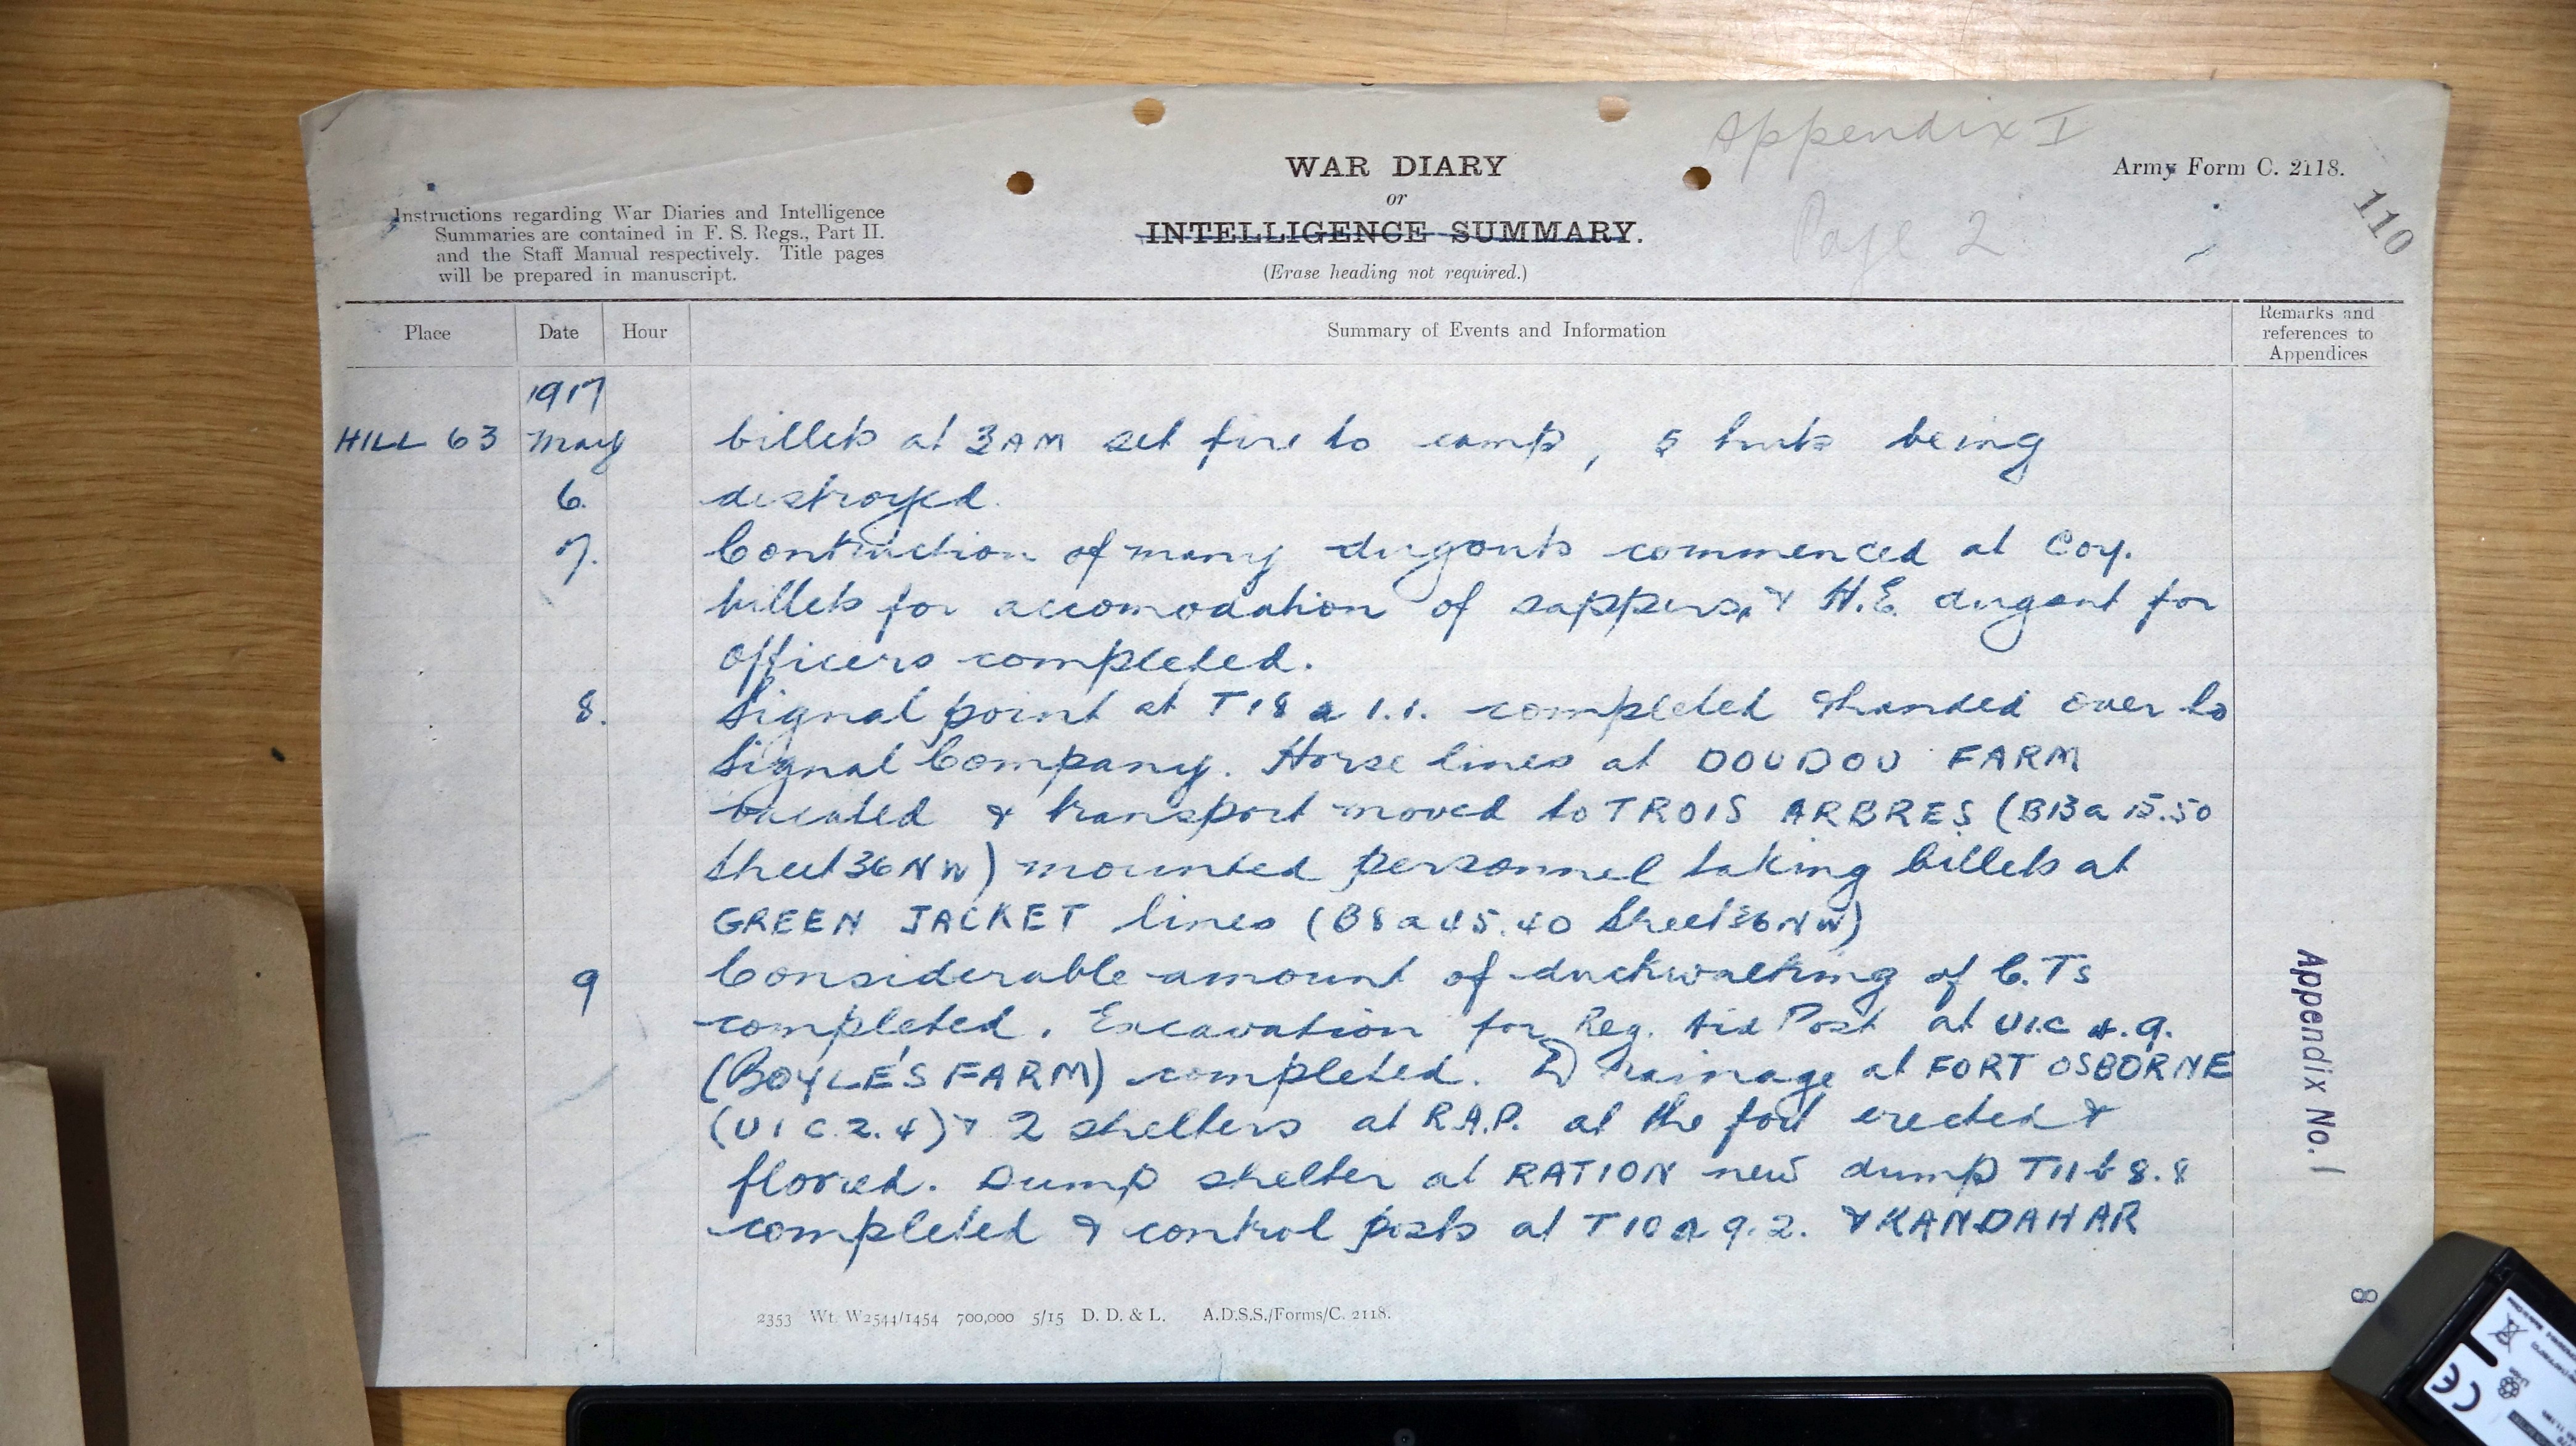 Appendix I
WAR DIARY
Army Form C. 2118.
or
110
Instructions regarding War Diaries and Intelligence
Summaries are contained in F. S. Regs., Part II.
and the Staff Manual respectively. Title pages
will be prepared in manuscript.
INTELLIGENCE SUMMARY.
Page 2
(Erase heading not required.)
Place Date Hour Summary of Events and Information Remarks and references to Appendices
1917
HILL 63 May billets at 3AM set fire to camp, 5 huts being
6. destroyed.
7. Contruction of many dugouts commenced at Coy.
billets for accomodation of sappers, & H.E. dugout for
officers completed.
8. Signal point at T18 a 1.1. completed & handed over to
Signal Company. Horse lines at DOUDOU FARM
vacated & transport moved to TROIS ARBRES (B13a 15.50
Sheet 36NW) mounted personnel taking billets at
GREEN JACKET lines (B8a 45.40 Sheet 36NW)
9 Considerable amount of duckwalking of C.Ts
completed. Excavation for Reg. Aid Post at U1.c 4.9.
(BOYLE'S FARM) completed. Drainage at FORT OSBORNE
(U1 c.2.4) & 2 shelters at R.A.P. at the fort erected &
floored. Dump shelter at RATION new dump T11 b 8.8
completed & control posts at T10 a 9.2. & KANDAHAR
Appendix No. 1
8
2353 Wt. W2544/1454 700,000 5/15 D. D. & L. A.D.S.S./Forms/C. 2118.